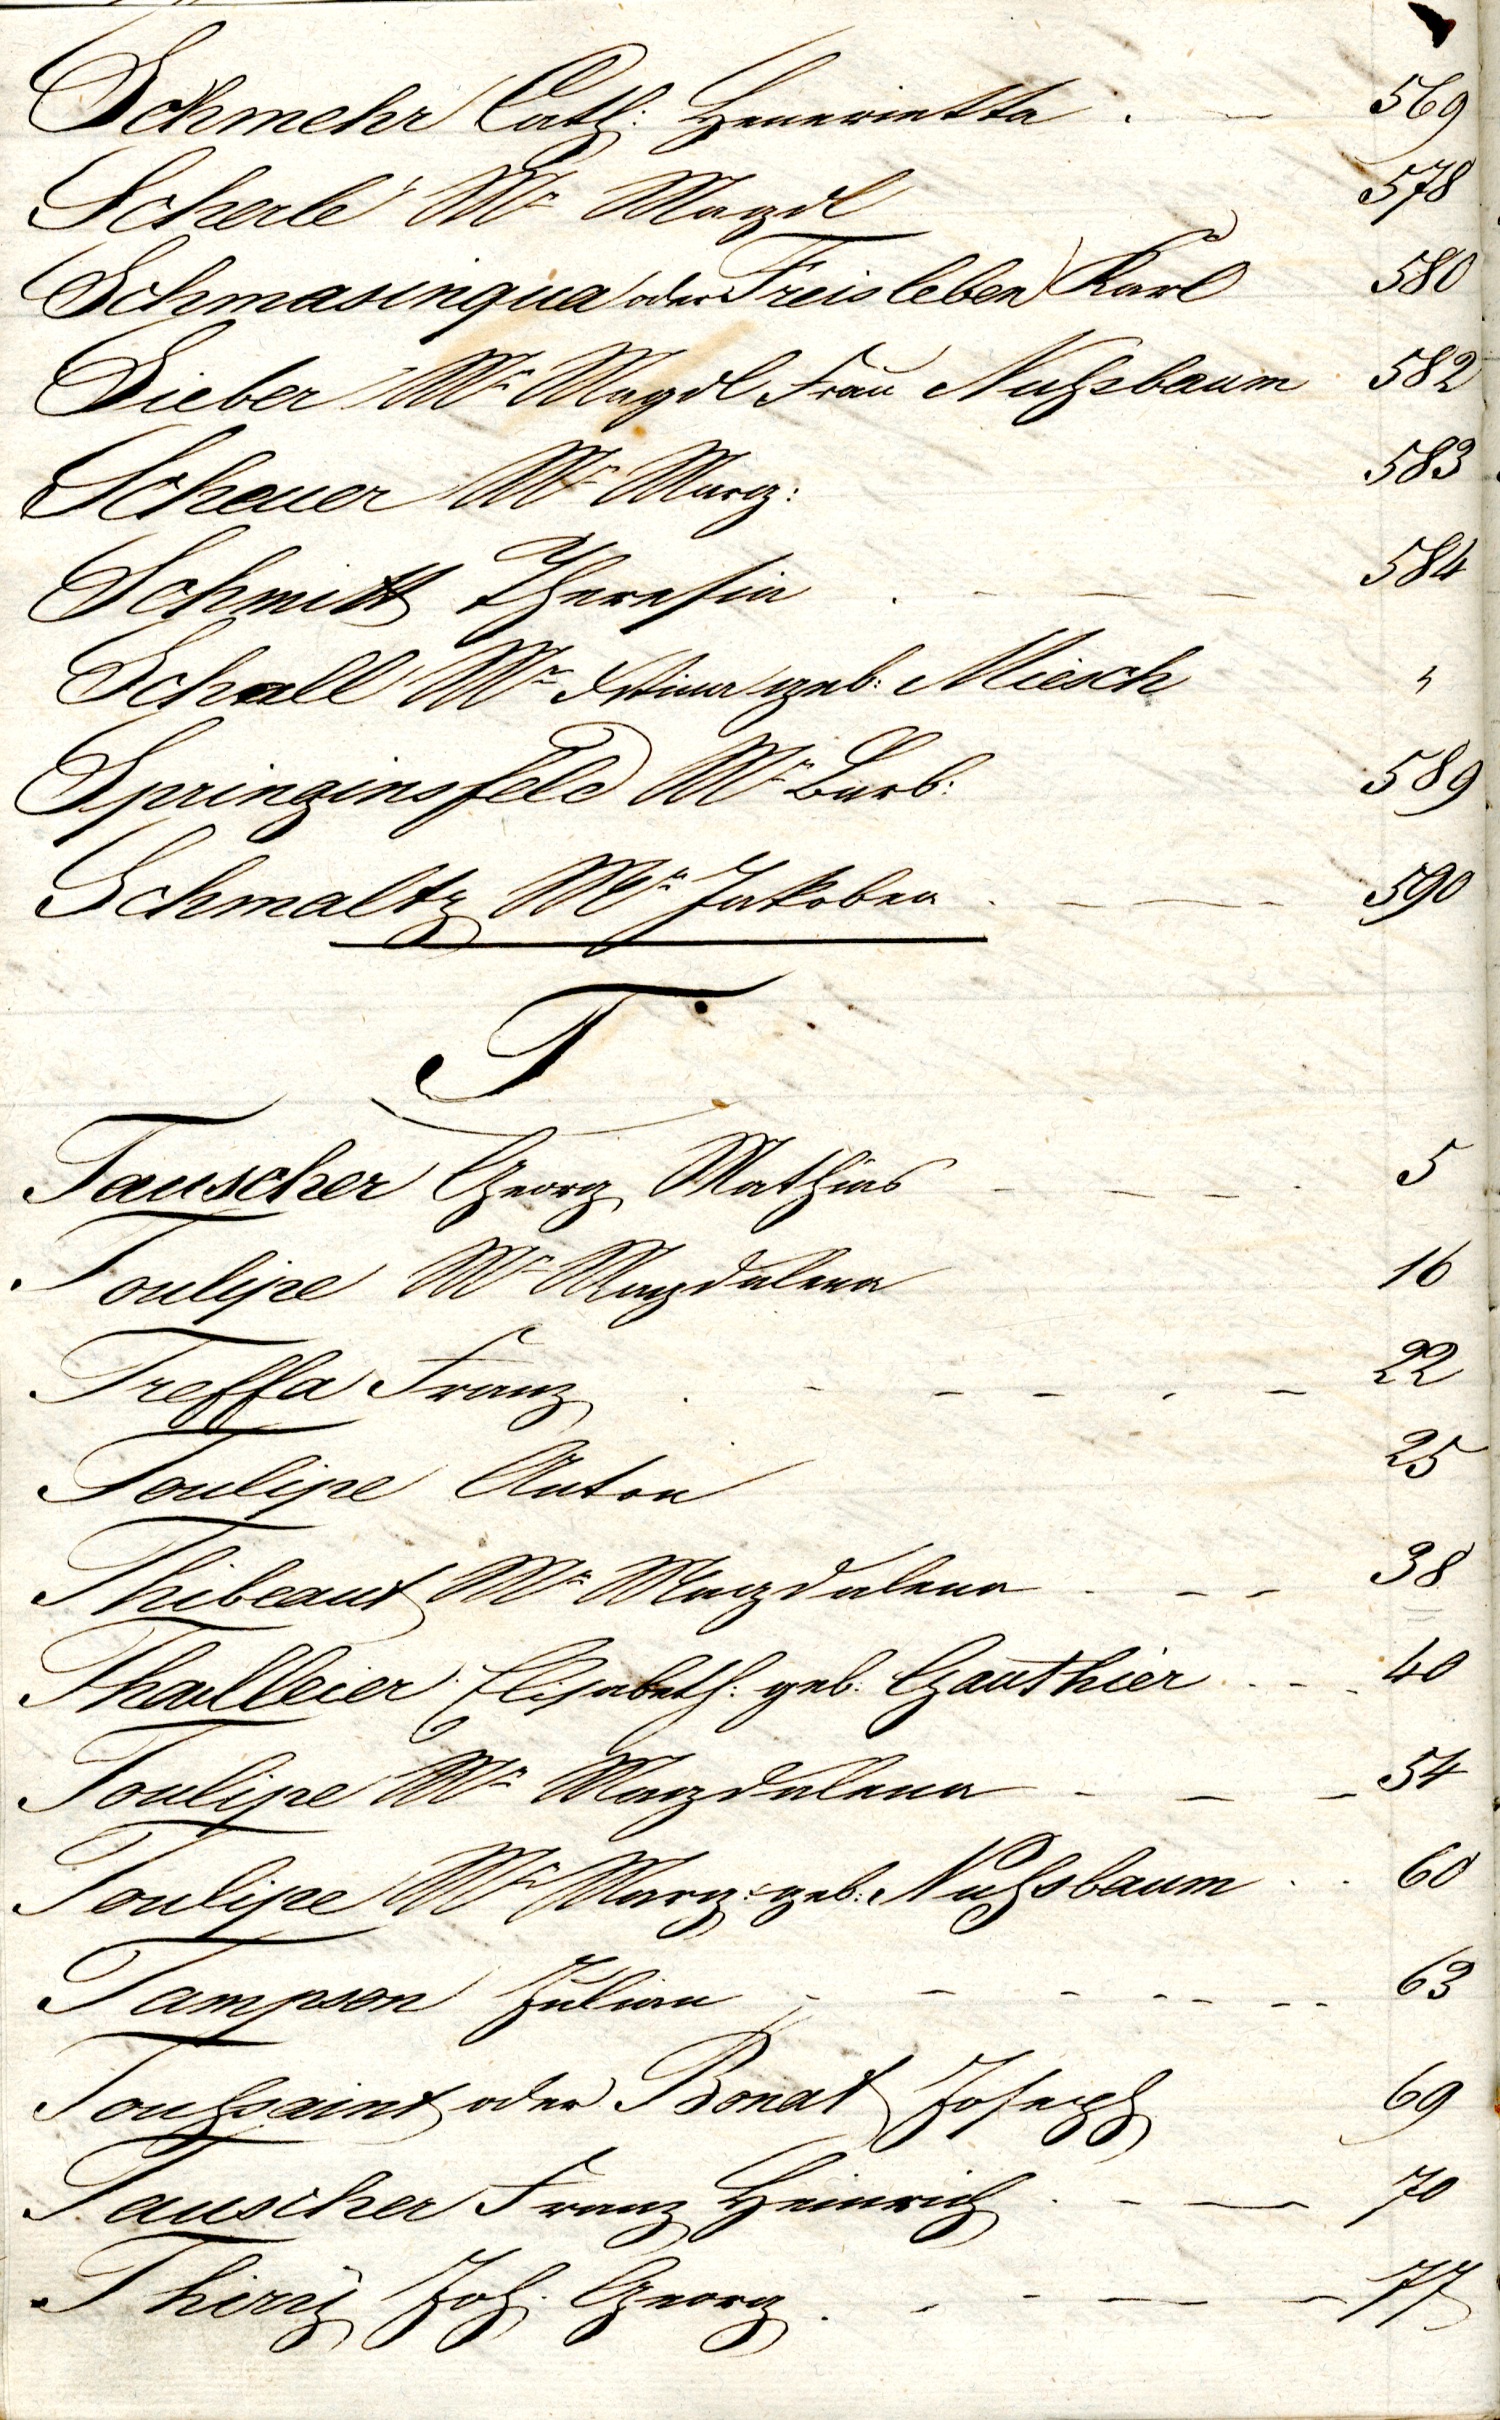 Schmehr Cath: Henerietta . — 569
Scherle Mª Magdl 578
Schmasinqua (oder Freisleben) Karl 580
Sieber Mª Magdl Frau Nußsbaum 582
Scheuer Mª Marg: 583
Schmitt Theresia . - — — — 584
Schall Mª geb: Miesch "
Springinsfeld Mª Barb: 589
Schmaltz Mª Jakobea . — — — 590
T
Tauscher Georg Mathias - — — - . 5
Toulipe Mª Magdalena 16
Treffa Franz . - - - . — 22
Toulipe Anton 25
Thibeaut Mª Magdalena . - - 38
Thailleier Elisabeth: geb: Gauthier . - - . 40
Toulipe Mª Magdalena - — — 54
Toulipe Mª Marg: geb: Nußsbaum . . 60
Tampson Julian - - - - - - - 63
Toußsaint oder Bonat Joseph 69
Tauscher Franz Heinrich . - — — 70
Thirÿ Joh: Georg . - - — — — 77